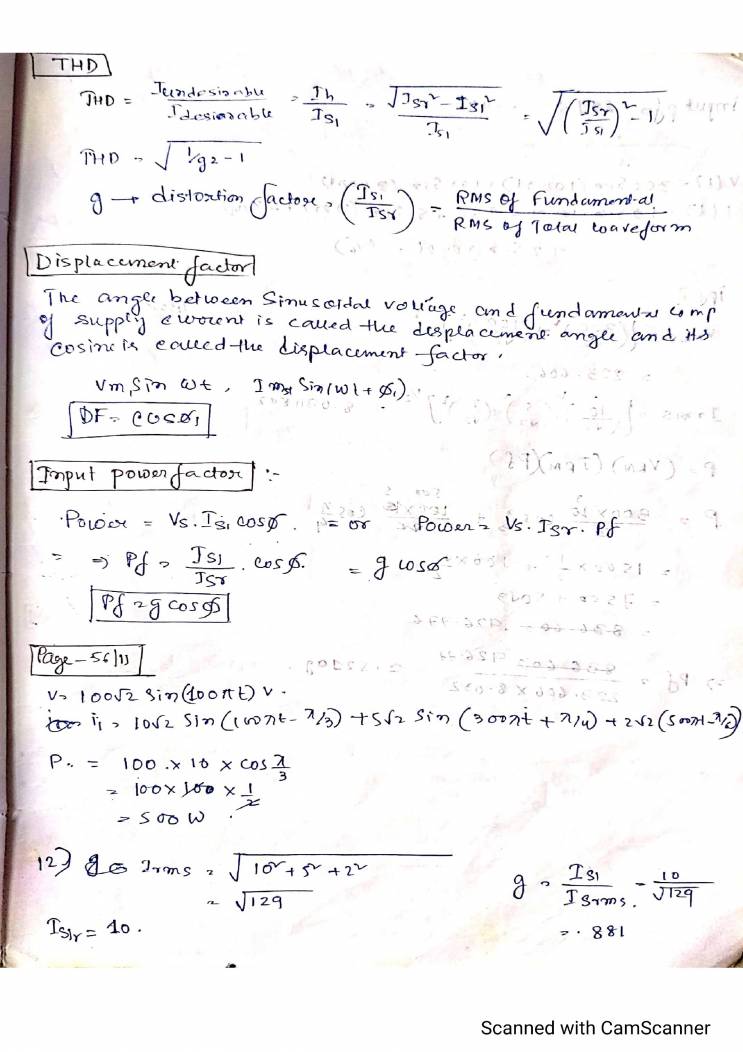 THD
THD = Iundesirable / Idesirable = Ih / IS1 = √(ISr² - IS1²) / IS1 = √((ISr / IS1)² - 1)
THD = √(1/g2 - 1)
g → distortion factor = (IS1 / ISr) = RMS of Fundamental / RMS of Total waveform
Displacement factor
The angle between Sinusoidal voltage and fundamental comp
of supply current is called the displacement angle and its
cosine is called the displacement factor.
Vm, Sin ωt, Ims1 Sin(ωt + φ1)
DF = cosφ1
Input power factor :-
Power = Vs. IS1 cosφ. = or Power = Vs. ISr. Pf
= ⇒ Pf = IS1 / ISr . cosφ. = g cosφ
Pf = g cosφ
Page - 56/11
V= 100√2 Sin(100πt) V.
i1 = 10√2 Sin(100πt - π/3) + 5√2 Sin (300πt + π/4) + 2√2 (500πt - π/6)
P.. = 100 . x 10 x cos π/3
= 100 x 100 x 1/2
= 500 W
12) Irms = √(10² + 5² + 2²) g = IS1 / ISrms. = 10 / √129
= √129
IS1r = 10. = .881
Scanned with CamScanner